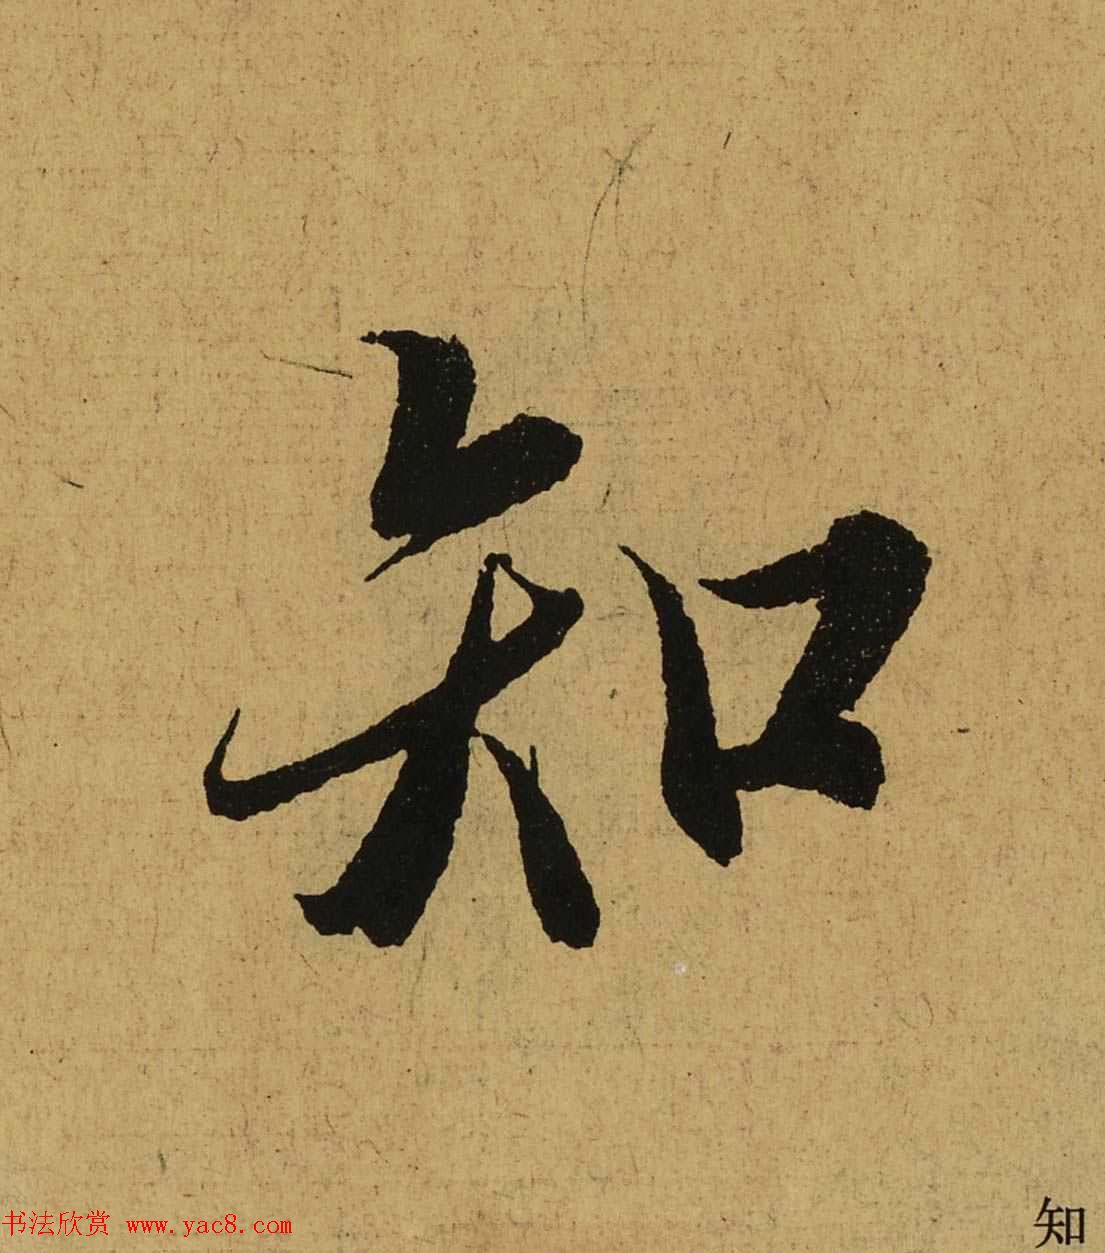 知
书法欣赏 www.yac8.com
知